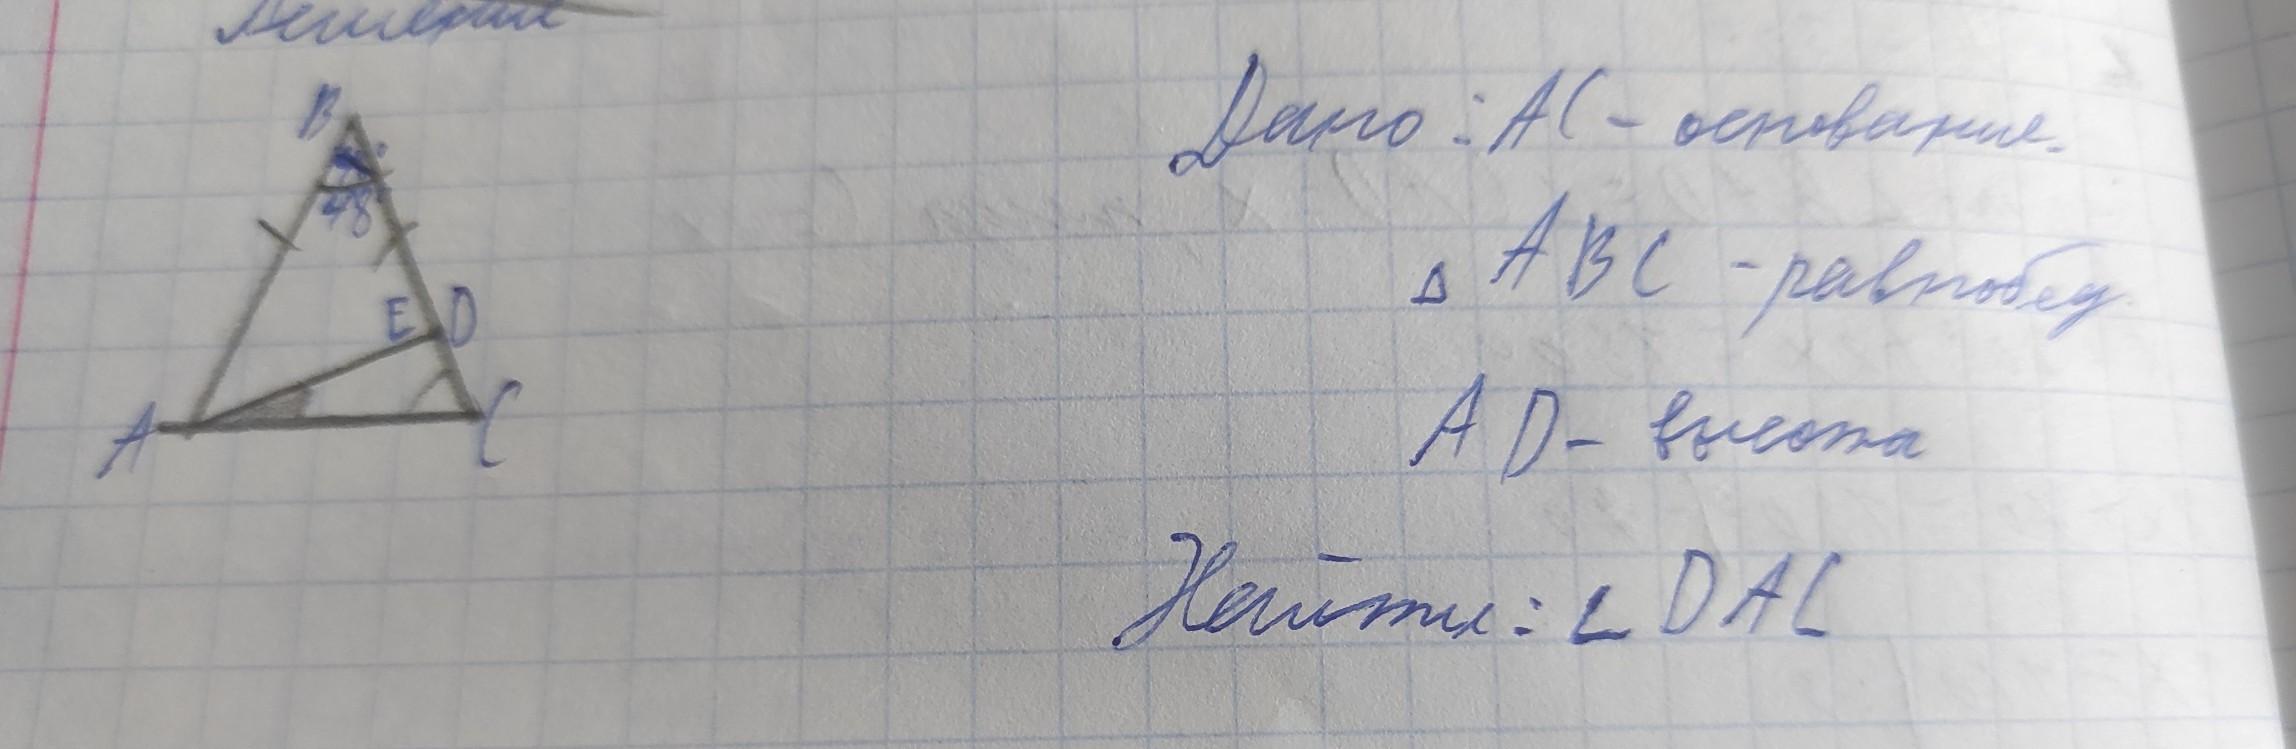 Решение
B
48°
E D
A C
Дано: AC - основание.
△ ABC - равнобед.
AD - высота
Найти: ∠ DAC